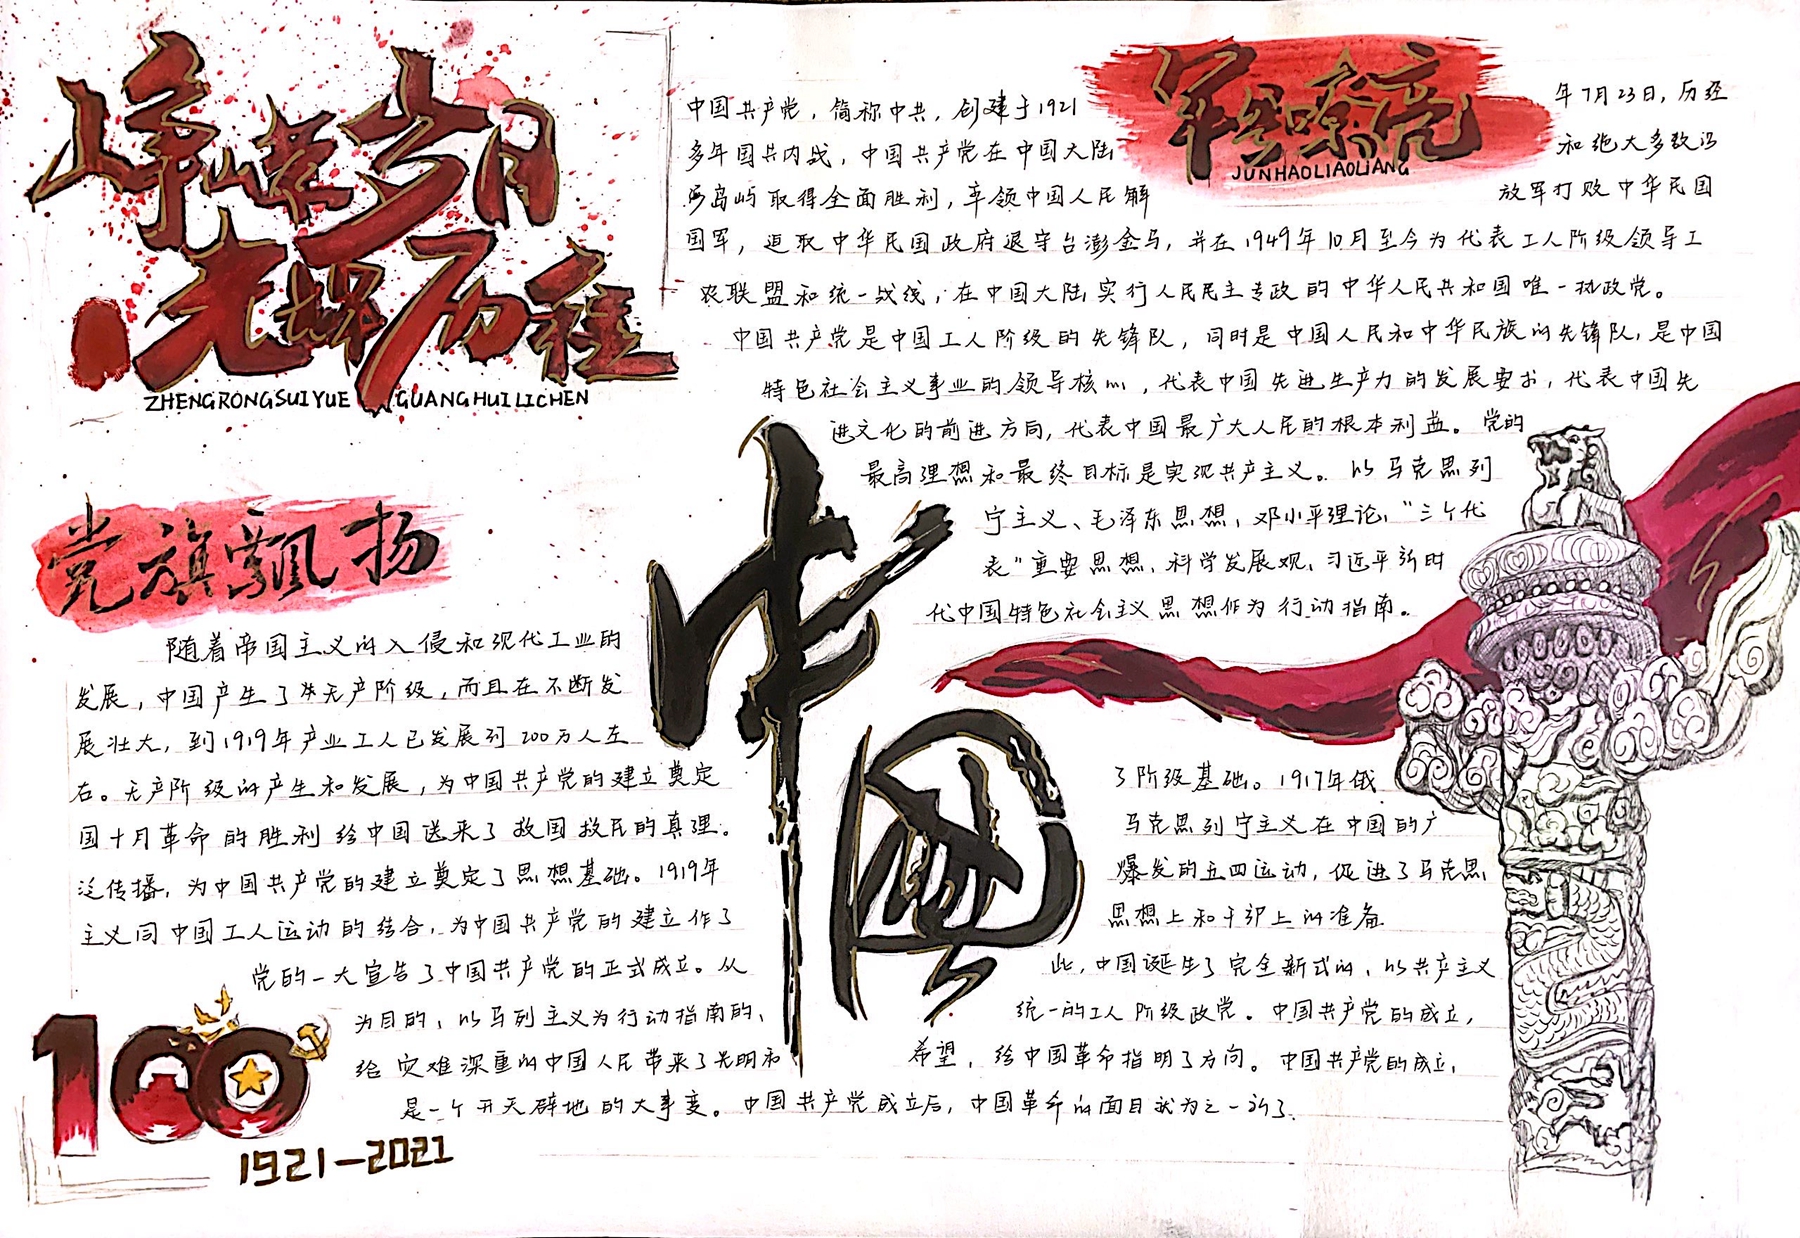 峥嵘岁月
光辉历程
ZHENGRONGSUIYUE GUANGHUILICHEN
军号嘹亮
JUNHAOLIAOLIANG
中国共产党，简称中共，创建于1921 年7月23日，历经
多年国共内战，中国共产党在中国大陆 和绝大多数沿
海岛屿取得全面胜利，率领中国人民解 放军打败中华民国
国军，迫取中华民国政府退守台澎金马，并在1949年10月至今为代表工人阶级领导工
农联盟和统一战线，在中国大陆实行人民民主专政的中华人民共和国唯一执政党。
中国共产党是中国工人阶级的先锋队，同时是中国人民和中华民族的先锋队，是中国
特色社会主义事业的领导核心，代表中国先进生产力的发展要求，代表中国先
进文化的前进方向，代表中国最广大人民的根本利益。党的
最高理想和最终目标是实现共产主义。以马克思列
宁主义、毛泽东思想，邓小平理论，“三个代
表”重要思想，科学发展观，习近平新时
代中国特色社会主义思想作为行动指南。
党旗飘扬
中国
随着帝国主义的入侵和现代工业的
发展，中国产生了本无产阶级，而且在不断发
展壮大，到1919年产业工人已发展到200万人左
右。无产阶级的产生和发展，为中国共产党的建立奠定 了阶级基础。1917年俄
国十月革命的胜利给中国送来了救国救民的真理。 马克思列宁主义在中国的广
泛传播，为中国共产党的建立奠定了思想基础。1919年 爆发的五四运动，促进了马克思
主义同中国工人运动的结合，为中国共产党的建立作了 思想上和干部上的准备
党的一大宣告了中国共产党的正式成立。从 此，中国诞生了完全新式的，以共产主义
为目的，以马列主义为行动指南的， 统一的工人阶级政党。中国共产党的成立，
给灾难深重的中国人民带来了光明和 希望，给中国革命指明了方向。中国共产党的成立，
是一个开天辟地的大事变。中国共产党成立后，中国革命的面目就为之一新了.
100
1921-2021